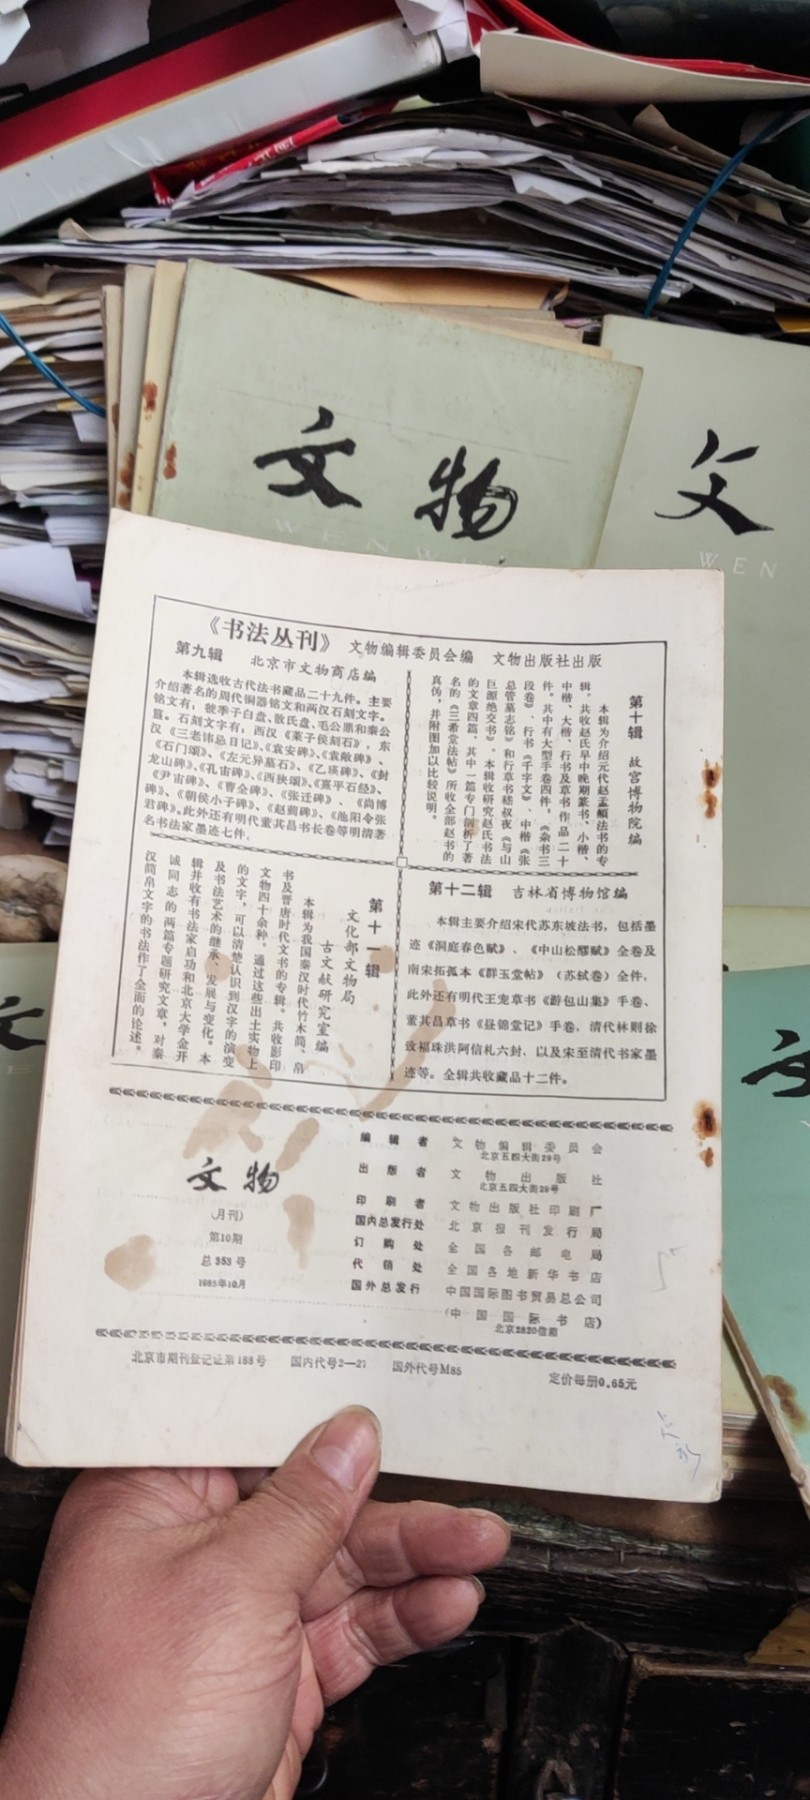 文物
WENW
文
WEN
《书法丛刊》 文物编辑委员会编 文物出版社出版
第九辑 北京市文物商店编
本辑选收古代法书藏品二十九件。主要
介绍著名的周代铜器铭文和两汉石刻文字。
铭文有：虢季子白盘、散氏盘、毛公鼎和秦公
簋。石刻文字有，西汉《莱子侯刻石》，东
汉《三老讳忌日记》、《袁安碑》、《袁敞碑》、
《石门颂》、《左元异墓石》、《乙瑛碑》、《封
龙山碑》、《孔宙碑》、《西狭颂》、《熹平石经》、
《尹宙碑》、《曹全碑》、《张迁碑》、《尚博
碑》、《朝侯小子碑》、《赵菿碑》、《池阳令张
君碑》。此外还有明代董其昌书长卷等明清著
名书法家墨迹七件。
第十辑 故宫博物院编
本辑为介绍元代赵孟頫法书的专
辑。共收赵氏早中晚期篆书、小楷、
中楷、大楷、行书及草书作品二十
件。其中有大型手卷四件，《杂书三
段卷》、行书《千字文》、中楷《张
总管墓志铭》和行草书嵇叔夜《与山
巨源绝交书》。本辑收研究赵氏书法
的文章四篇，其中一篇专门剖析了著
名的《三希堂法帖》所收全部赵书的
真伪，并附图加以比较说明。
第十一辑
文化部文物局
古文献研究室编
本辑为我国秦汉时代竹木简、帛
书及晋唐时代文书的专辑。共收影印
文物四十余种。通过这些出土实物上
的文字，可以清楚认识到汉字的演变
及书法艺术的继承、发展与变化。本
辑并收有书法家启功和北京大学金开
诚同志的两篇专题研究文章，对秦
汉简帛文字的书法作了全面的论述。
第十二辑 吉林省博物馆编
本辑主要介绍宋代苏东坡法书，包括墨
迹《洞庭春色赋》、《中山松醪赋》全卷及
南宋拓孤本《群玉堂帖》（苏轼卷）全件，
此外还有明代王宠草书《游包山集》手卷、
董其昌草书《昼锦堂记》手卷，清代林则徐
致福珠洪阿信札六封，以及宋至清代书家墨
迹等。全辑共收藏品十二件。
文物
（月刊）
第10期
总 353 号
1985年10月
编辑者 文物编辑委员会
北京五四大街29号
出版者 文物出版社
北京五四大街29号
印刷者 文物出版社印刷厂
国内总发行处 北京报刊发行局
订购处 全国各邮电局
代销处 全国各地新华书店
国外总发行 中国国际图书贸易总公司
（中国国际书店）
北京2820信箱
北京市期刊登记证第188号 国内代号2—27 国外代号M85 定价每册0.65元
文